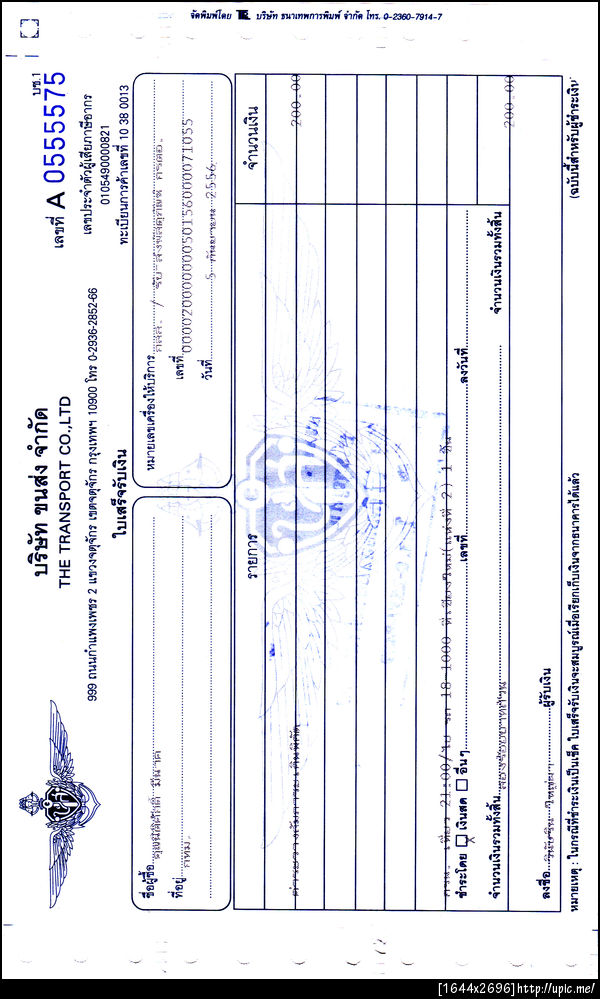 จัดพิมพ์โดย บริษัท ธนาเทพการพิมพ์ จำกัด โทร. 0-2360-7914-7
บริษัท ขนส่ง จำกัด
THE TRANSPORT CO.,LTD
999 ถนนกำแพงเพชร 2 แขวงจตุจักร เขตจตุจักร กรุงเทพฯ 10900 โทร 0-2936-2852-66
บช.1
เลขที่ A 0555575
เลขประจำตัวผู้เสียภาษีอากร
0105490000821
ทะเบียนการค้าเลขที่ 10 38 0013
ใบเสร็จรับเงิน
ชื่อผู้ซื้อ
ที่อยู่ กทม.
หมายเลขเครื่องให้บริการ
เลขที่ 00002000000050156000071055
วันที่ 5 กันยายน 2556
รายการ จำนวนเงิน
200.00
เที่ยว 21:00/ รถ 18-1000 ที่เชียงใหม่(แห่งที่ 2) 1 ชิ้น
ชำระโดย เงินสด อื่นๆ เลขที่ ลงวันที่
จำนวนเงินรวมทั้งสิ้น สองร้อยบาทถ้วน จำนวนเงินรวมทั้งสิ้น 200.00
ลงชื่อ ผู้รับเงิน
หมายเหตุ : ในกรณีที่ชำระเงินเป็นเช็ค ใบเสร็จรับเงินจะสมบูรณ์เมื่อเรียกเก็บเงินจากธนาคารได้แล้ว (ฉบับนี้สำหรับผู้ชำระเงิน)
[1644x2696]http://upic.me/